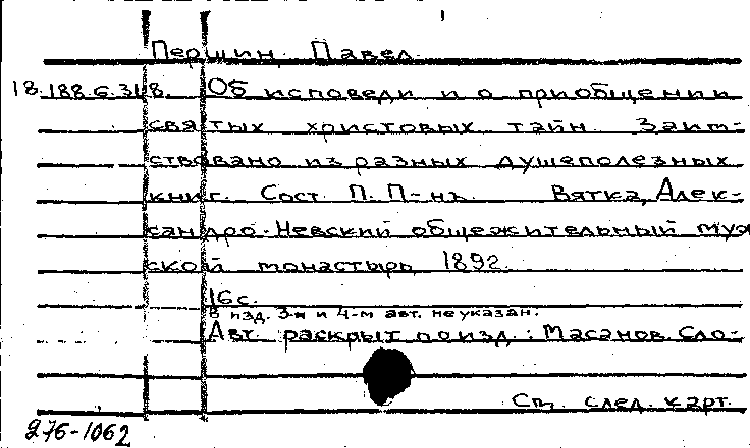 Першин, Павел.
18.188.6.318. Об исповеди и о приобщении
святых христовых тайн. Заим-
ствовано из разных душеполезных
книг. Сост. П. П-нъ. Вятка, Алек-
сандро-Невский общежительный муж
ской монастырь, 1892.
16 с.
В изд. 3-м и 4-м авт. не указан.
Авт. раскрыт по изд.: Масанов. Сло-
См. след. карт.
276-1062